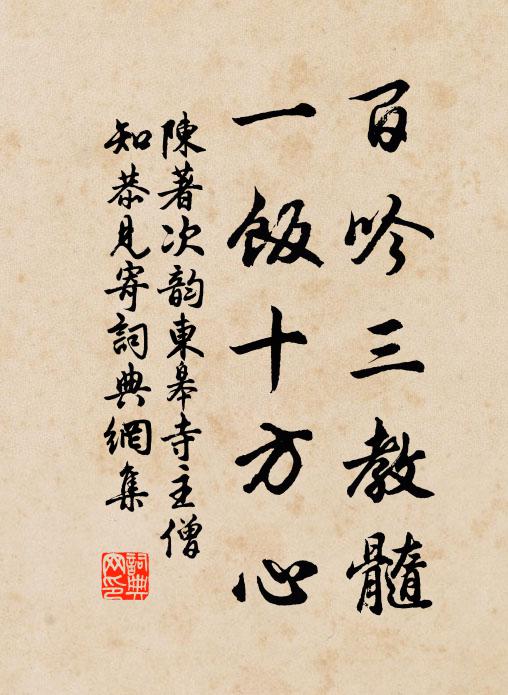 百吟三教髓
一飯十方心
陳著次韵東皋寺主僧
知恭見寄詞典網集
詞典網印